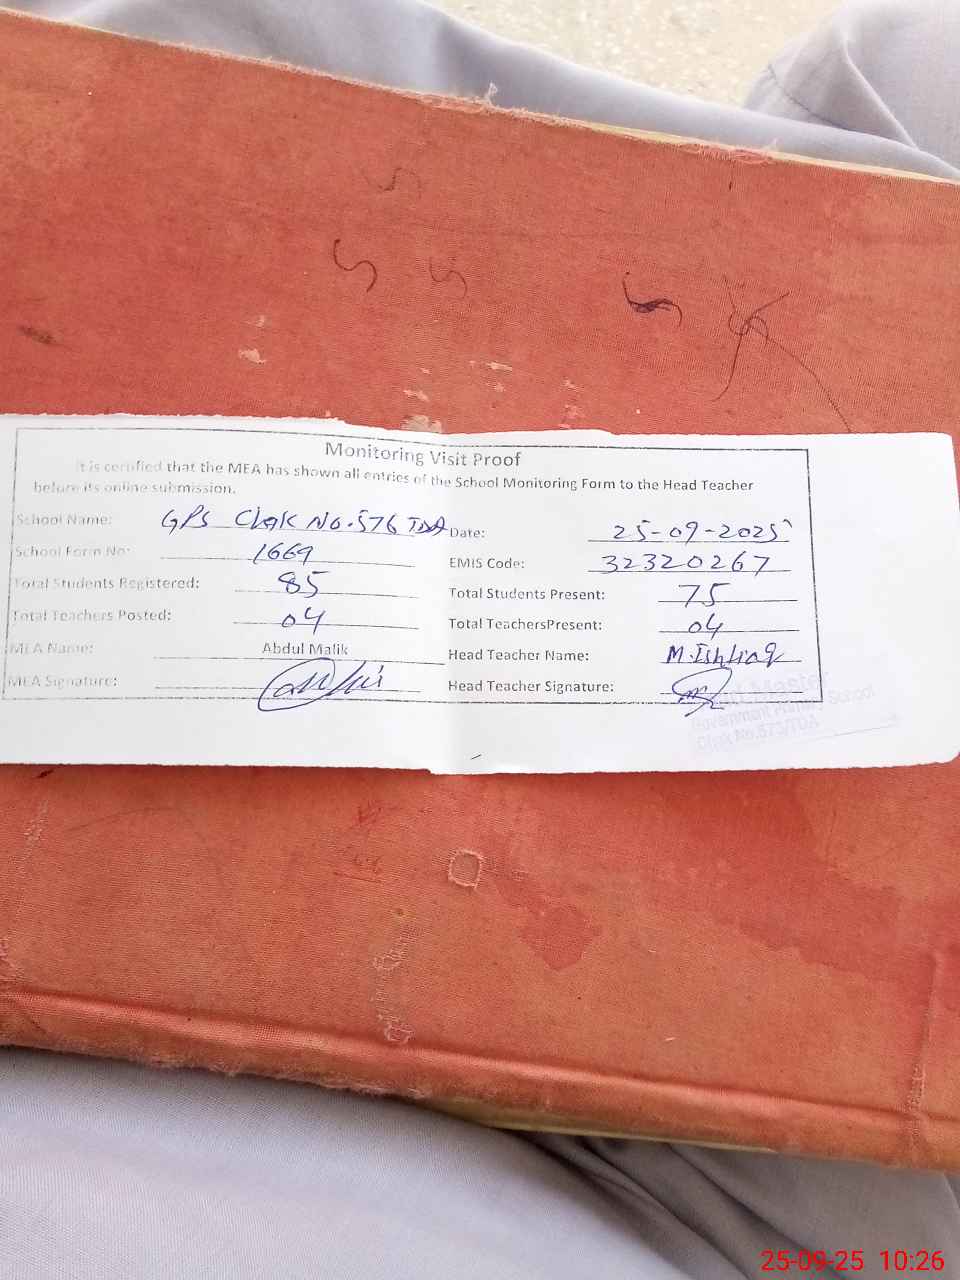 Monitoring Visit Proof
It is certified that the MEA has shown all entries of the School Monitoring Form to the Head Teacher
before its online submission.
School Name: GPS Chak No. 576 TDA Date: 25-09-2025
School Form No: 1669 EMIS Code: 32320267
Total Students Registered: 85 Total Students Present: 75
Total Teachers Posted: 04 Total TeachersPresent: 04
MEA Name: Abdul Malik Head Teacher Name: M.Ishtiaq
MEA Signature: Head Teacher Signature:
School
25-09-25 10:26